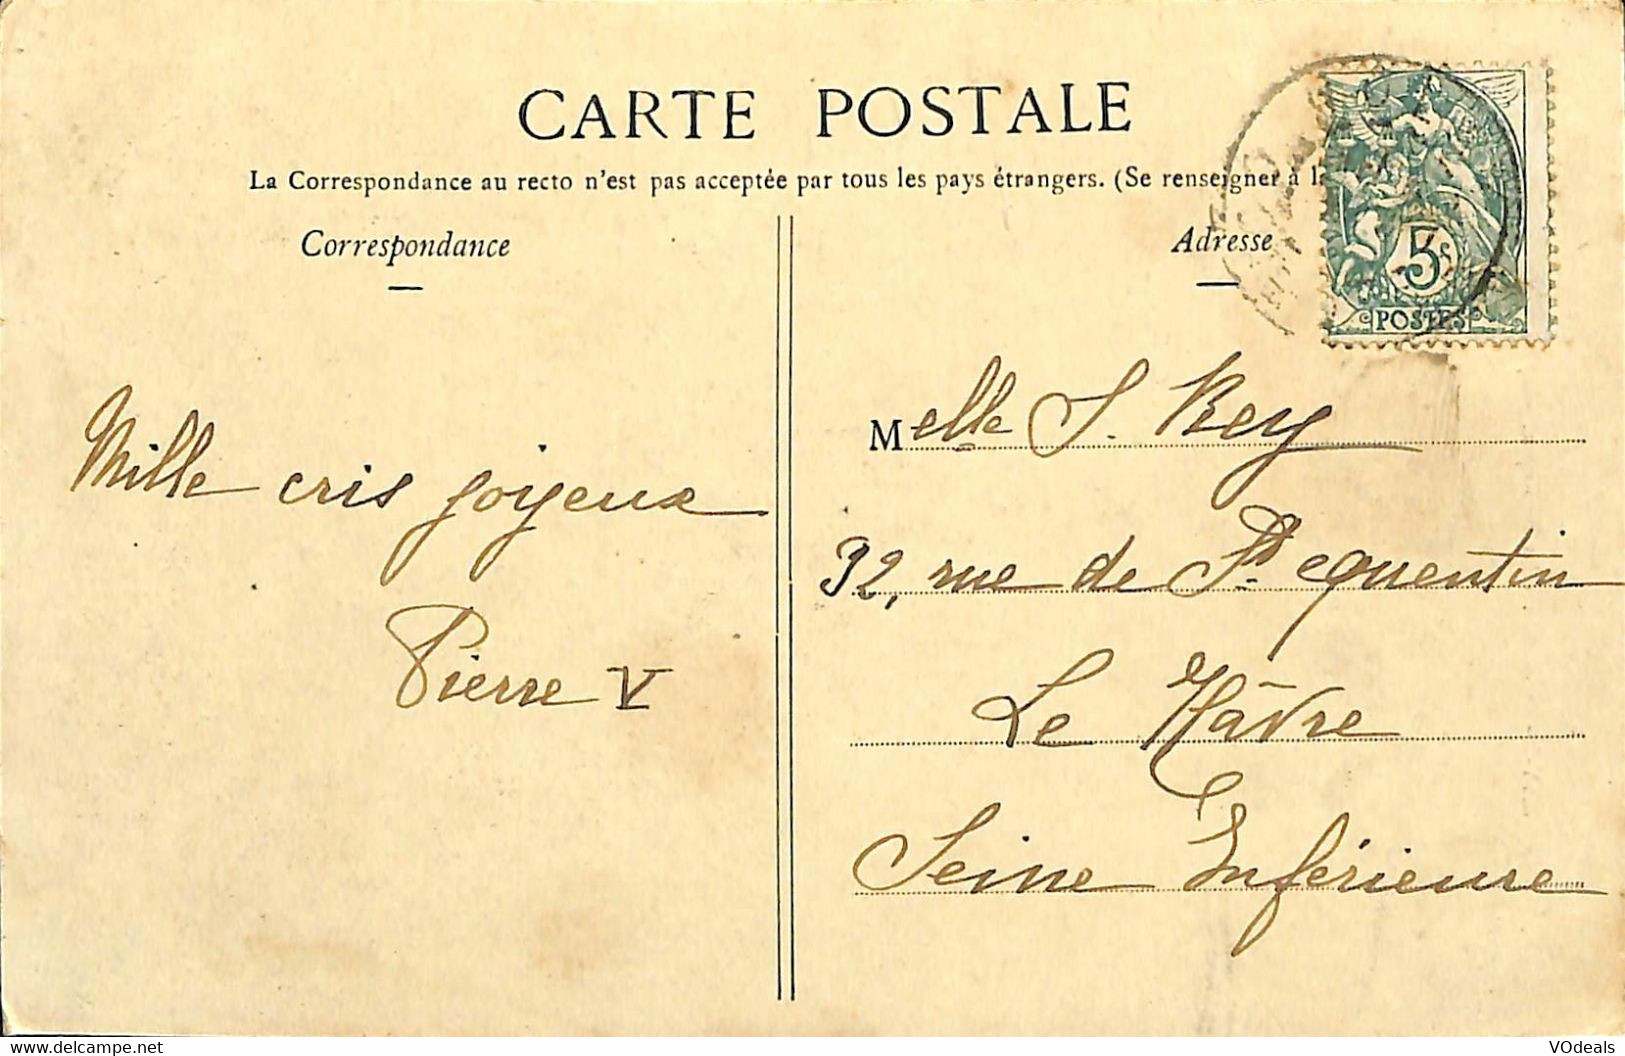 CARTE POSTALE
La Correspondance au recto n'est pas acceptée par tous les pays étrangers. (Se renseigner à la
Correspondance
Adresse
5
POSTES
Melle S. Rey
Mille cris joyeux
32, rue de St. Quentin
Pierre V
Le Hâvre
Seine Inférieure
www.delcampe.net
VOdeals